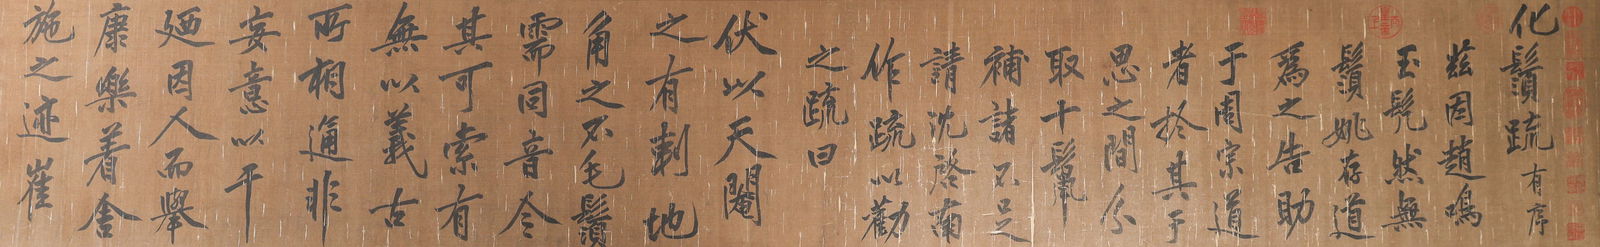 化鬚疏有序
茲因趙鳴
玉髡然無
鬚姚存道
爲之告助
于周宗道
者於其于
思之間分
取十鬣
補諸不足
請沈啓南
作疏以勸
之疏曰
伏以天閹
之有刺地
角之不毛鬚
需同音今
其可索有
無以義古
所相通非
妄意以干
廼因人而舉
康樂着舍
施之迹崔